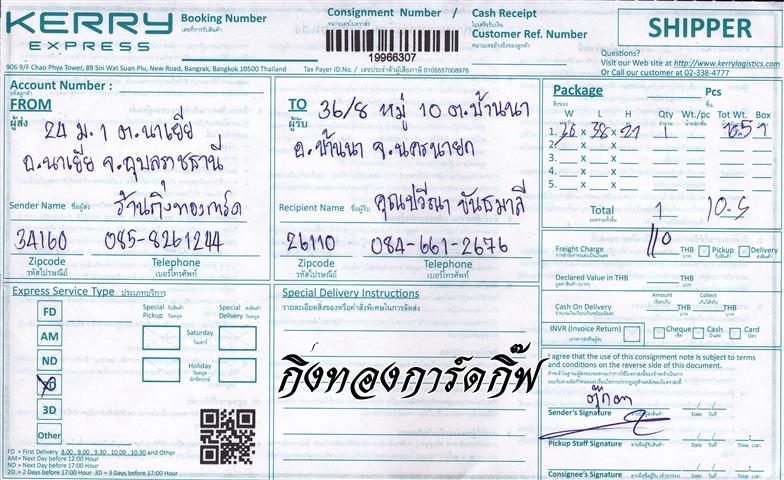 KERRY
EXPRESS
Booking Number
เลขที่การรับสินค้า
Consignment Number /
หมายเลขใบตราส่ง
19966307
Cash Receipt
ใบเสร็จรับเงิน
Customer Ref. Number
หมายเลขอ้างอิงของลูกค้า
SHIPPER
Questions?
Visit our Web site at http://www.kerrylogistics.com
Or Call our customer at 02-338-4777
906 9/F Chao Phya Tower, 89 Soi Wat Suan Plu, New Road, Bangrak, Bangkok 10500 Thailand
Tax Payer ID.No. / เลขประจำตัวผู้เสียภาษี 0105557008976
Account Number :
รหัสลูกค้า
FROM
ผู้ส่ง
24 ม.1 ต.นาเยีย
อ.นาเยีย จ.อุบลราชธานี
Sender Name ชื่อผู้ส่ง ร้านกิ่งทองการ์ด
34160 085-8261244
Zipcode Telephone
รหัสไปรษณีย์ เบอร์โทรศัพท์
TO
ผู้รับ
36/8 หมู่ 10 ต.บ้านนา
อ.บ้านนา จ.นครนายก
Recipient Name ชื่อผู้รับ คุณปวีณา ขันธมาลี
26110 084-661-2676
Zipcode Telephone
รหัสไปรษณีย์ เบอร์โทรศัพท์
Package Pcs
สิ่งของ ชิ้น
W L H Qty Wt./pc Tot Wt. Box
1. x 38 x 1 10.5
2. x x
3. x x
4. x x
5. x x
Total 1 10.5
Freight Charge 110 THB Pickup Delivery
Declared Value in THB THB
Amount Collect
Cash On Delivery THB THB
INVR (Invoice Return) Cheque Cash Card
เช็ค เงินสด บัตร
I agree that the use of this consignment note is subject to terms
and conditions on the reverse side of this document.
Sender's Signature
Pickup Staff Signature
Consignee's Signature
Express Service Type ประเภทบริการ
FD
AM
ND
2D
3D
Other
Special Pickup
Special Delivery
Saturday
วันเสาร์
Holiday
วันหยุด
นักขัตฤกษ์
FD = First Delivery 8.00 , 9.00 , 9.30 , 10.00 , 10.30 and Other
AM= Next Day before 12:00 Hour
ND = Next Day before 17:00 Hour
2D = 2 Days before 17:00 Hour 3D = 3 Days before 17:00 Hour
Special Delivery Instructions
รายละเอียดสิ่งของหรือคำสั่งพิเศษในการจัดส่ง
กิ่งทองการ์ดกิ๊ฟ